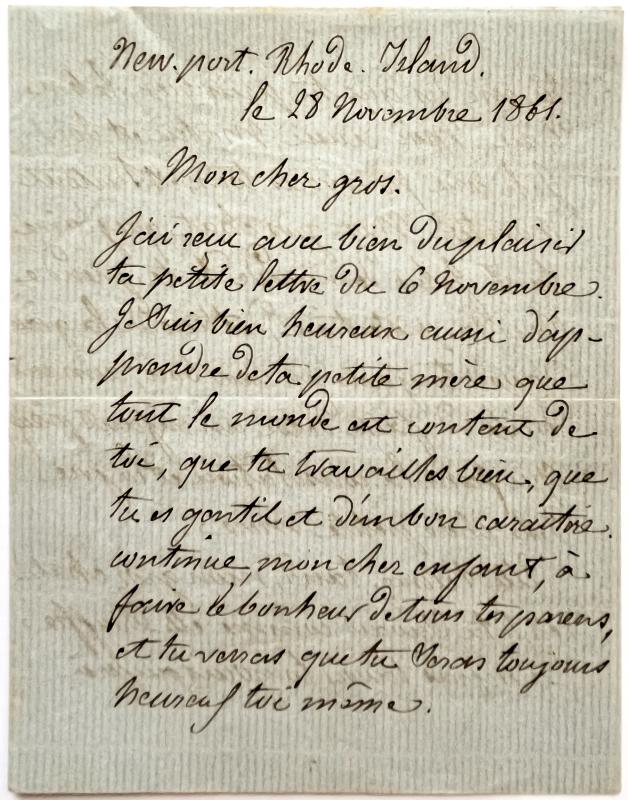 New-port. Rhode. Island.
le 28 Novembre 1861.
Mon cher gros.
J'ai reçu avec bien du plaisir
ta petite lettre du 6 Novembre.
Je suis bien heureux aussi d'ap-
prendre de ta petite mère que
tout le monde est content de
toi, que tu travailles bien, que
tu es gentil et d'un bon caractère.
continue, mon cher enfant, à
faire le bonheur de tous tes parens,
et tu verras que tu seras toujours
heureux toi même.